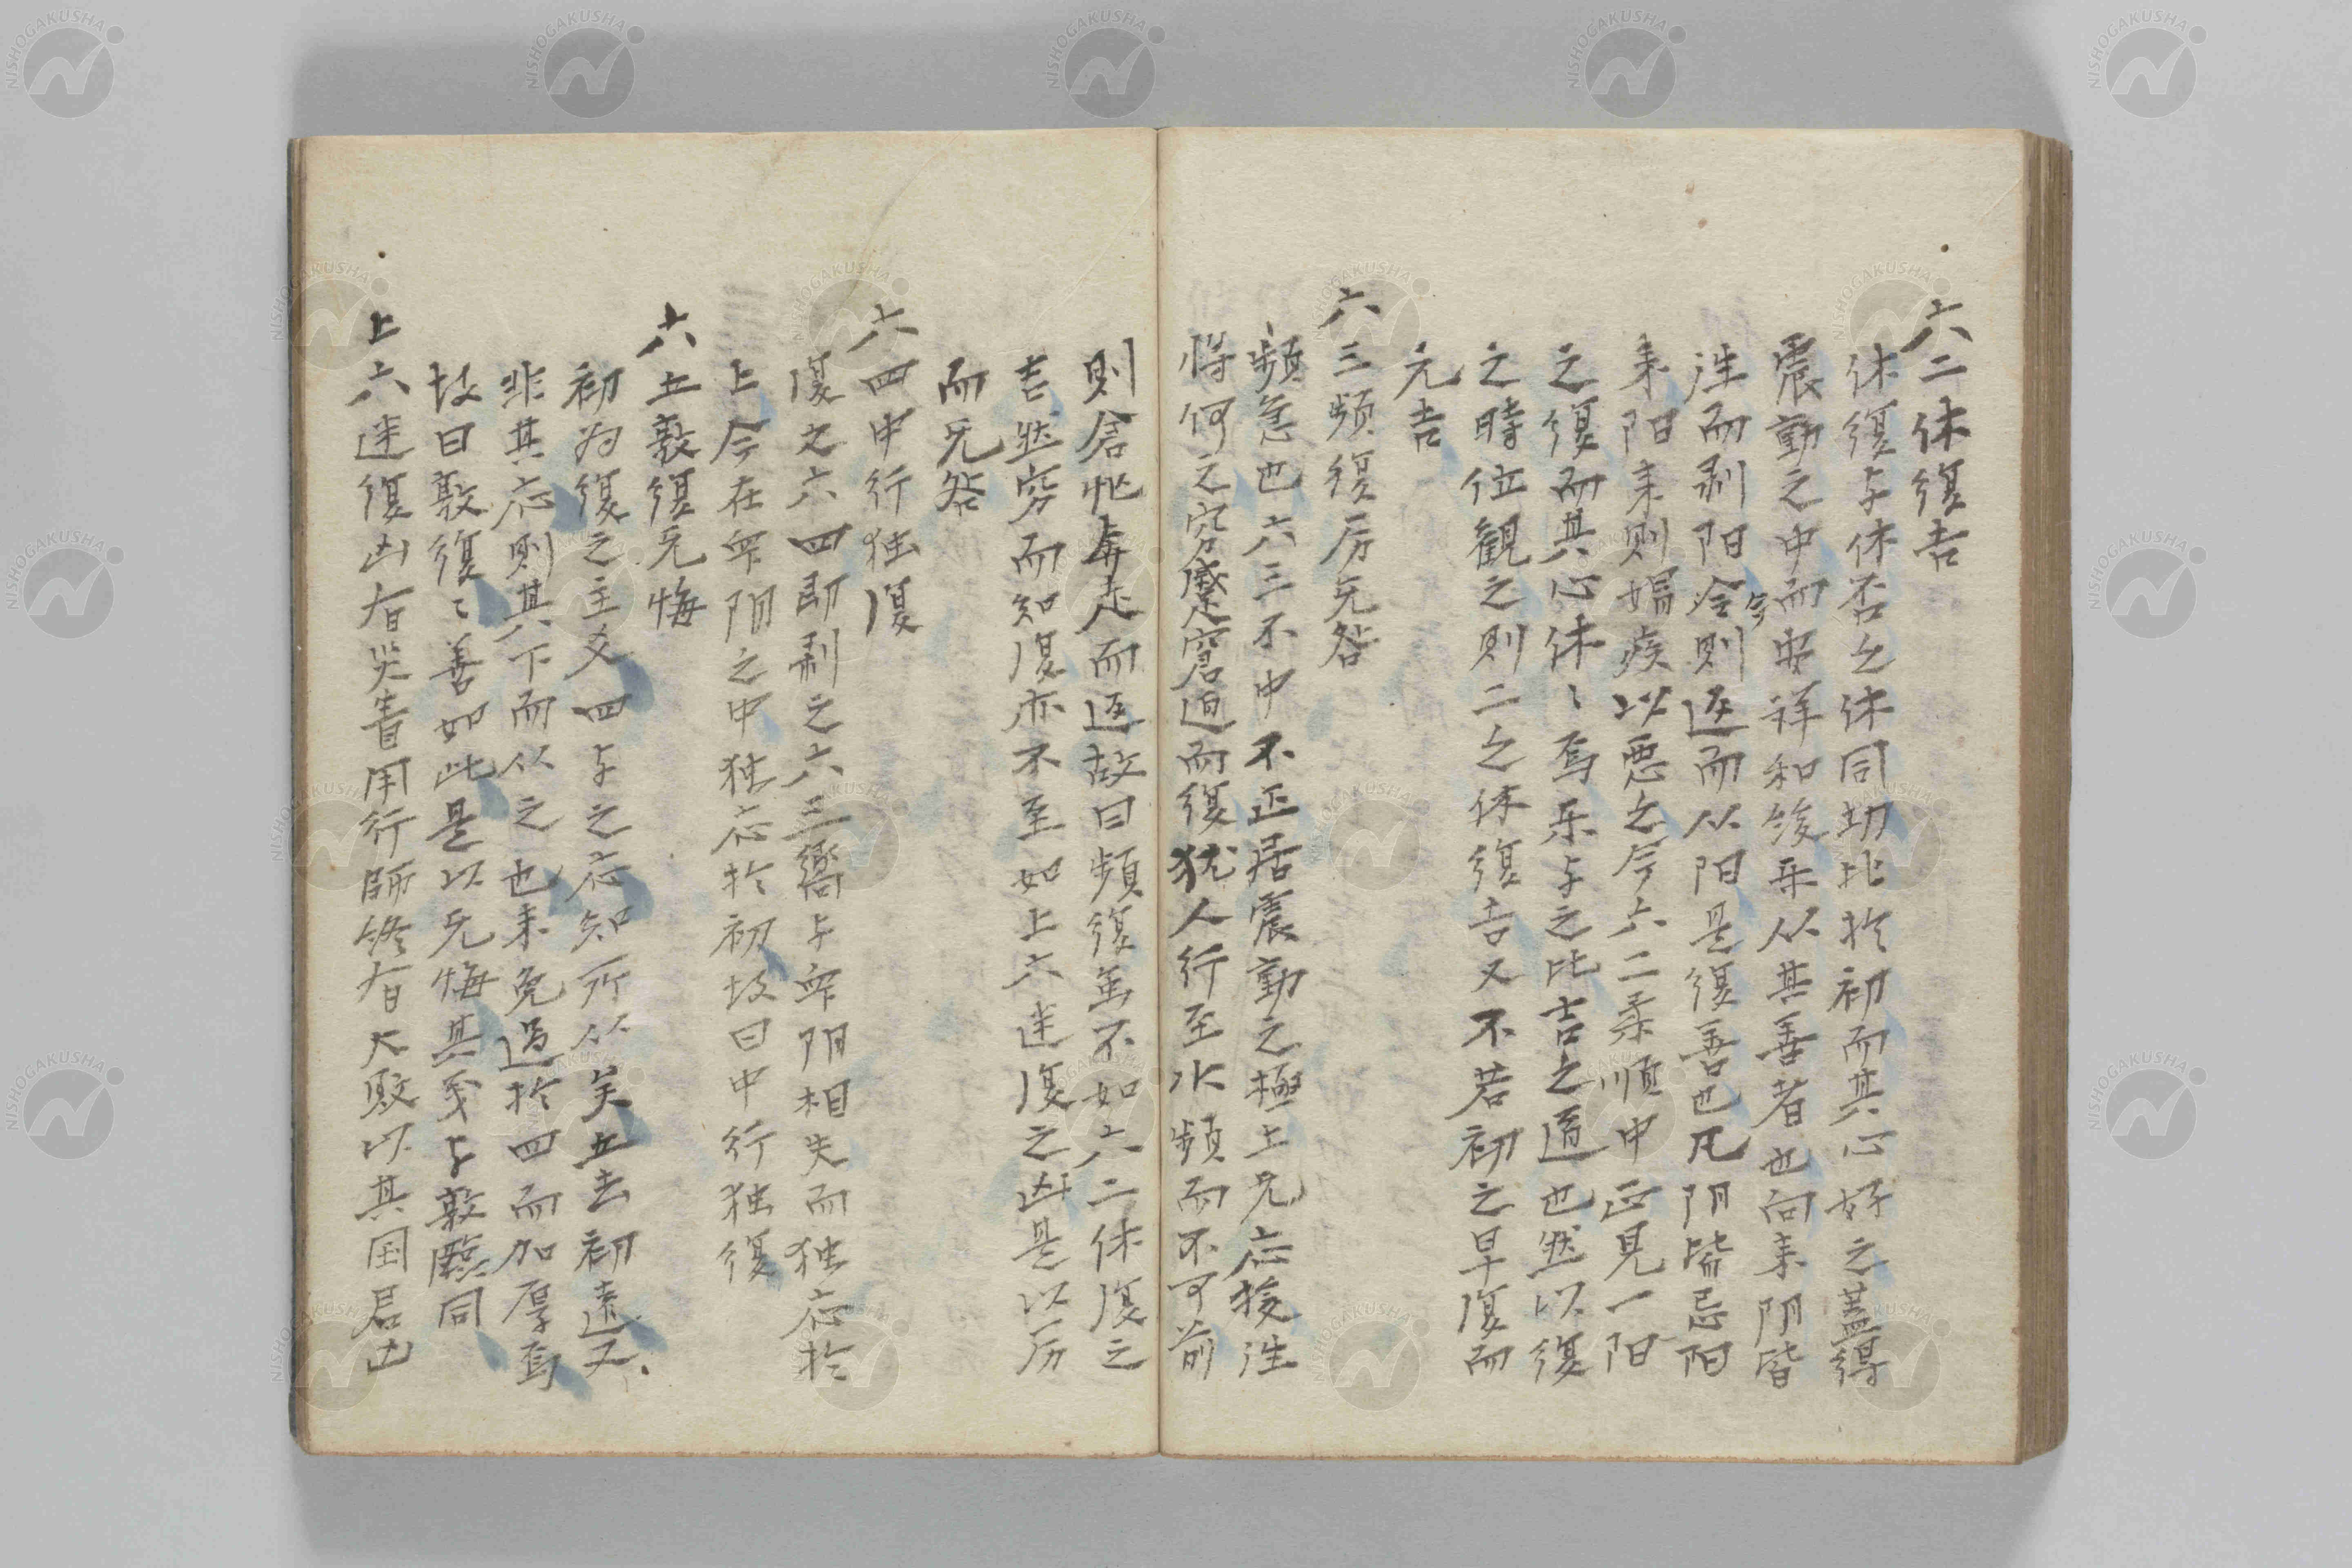 六二休復吉
休復与休否之休同切比於初而其心好之蓋得
震動之中而安詳和後乗从其善者也向来阴皆
往而剥阳今則返而从阳是復善也凡阴皆忌阳
来阳来則媢疾以悪之今六二柔順中正見一阳
之復而其心休〻焉乐与之比吉之道也然以復
之時位観之則二之休復吉又不若初之早復而
元吉
六三頻復厉无咎
頻急也六三不中不正居震動之極上无应援往
将何之窮蹙窘迫而復犹人行至水頻而不可前
則倉忙奔走而返故曰頻復虽不如六二休復之
吉然窮而知復亦不至如上六迷復之凶是以厉
而无咎
六四中行独復
復之六四即剥之六三嚮与衆阴相失而独应於
上今在衆阴之中独应於初故曰中行独復
六五敦復无悔
初为復之主爻四与之应知所从矣五去初遠又
非其应則其下而从之也未免過於四而加厚焉
故曰敦復〻善如此是以无悔其义与敦臨同
上六迷復凶有災眚用行師終有大敗以其国君凶
NISHOGAKUSHA